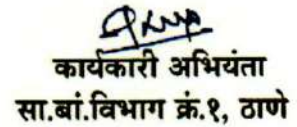 कार्यकारी अभियंता
सा.बां.विभाग क्रं.१, ठाणे